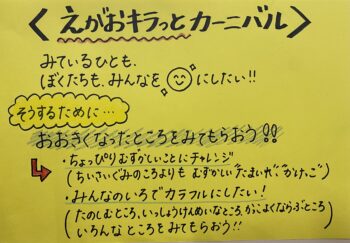 えがおキラっとカーニバル
みているひとも、
ぼくたちも、みんなを☺にしたい!!
そうするために…
おおきくなったところをみてもらおう!!
・ちょっぴりむずかしいことにチャレンジ
(ちいさいぐみのころよりも むずかしい"たまいれ"、"かけっこ")
・みんなのいろでカラフルにしたい!
(たのしむところ、いっしょうけんめいなところ、かっこよくならぶところ
いろんなところをみてもらう!!)